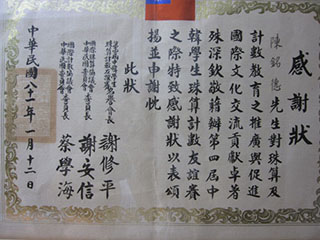 感謝狀
陳銘德先生對珠算及
計數教育之推廣與促進
國際文化交流貢獻卓著
殊深欽敬藉辦第四屆中
韓學生珠算計數友誼賽
之際特致感謝狀以表頌
揚並申謝忱
此狀
謝修平
中華民國委員會委員長 謝安信
中華民國委員會委員長 蔡學海
中華民國八十一年一月十二日